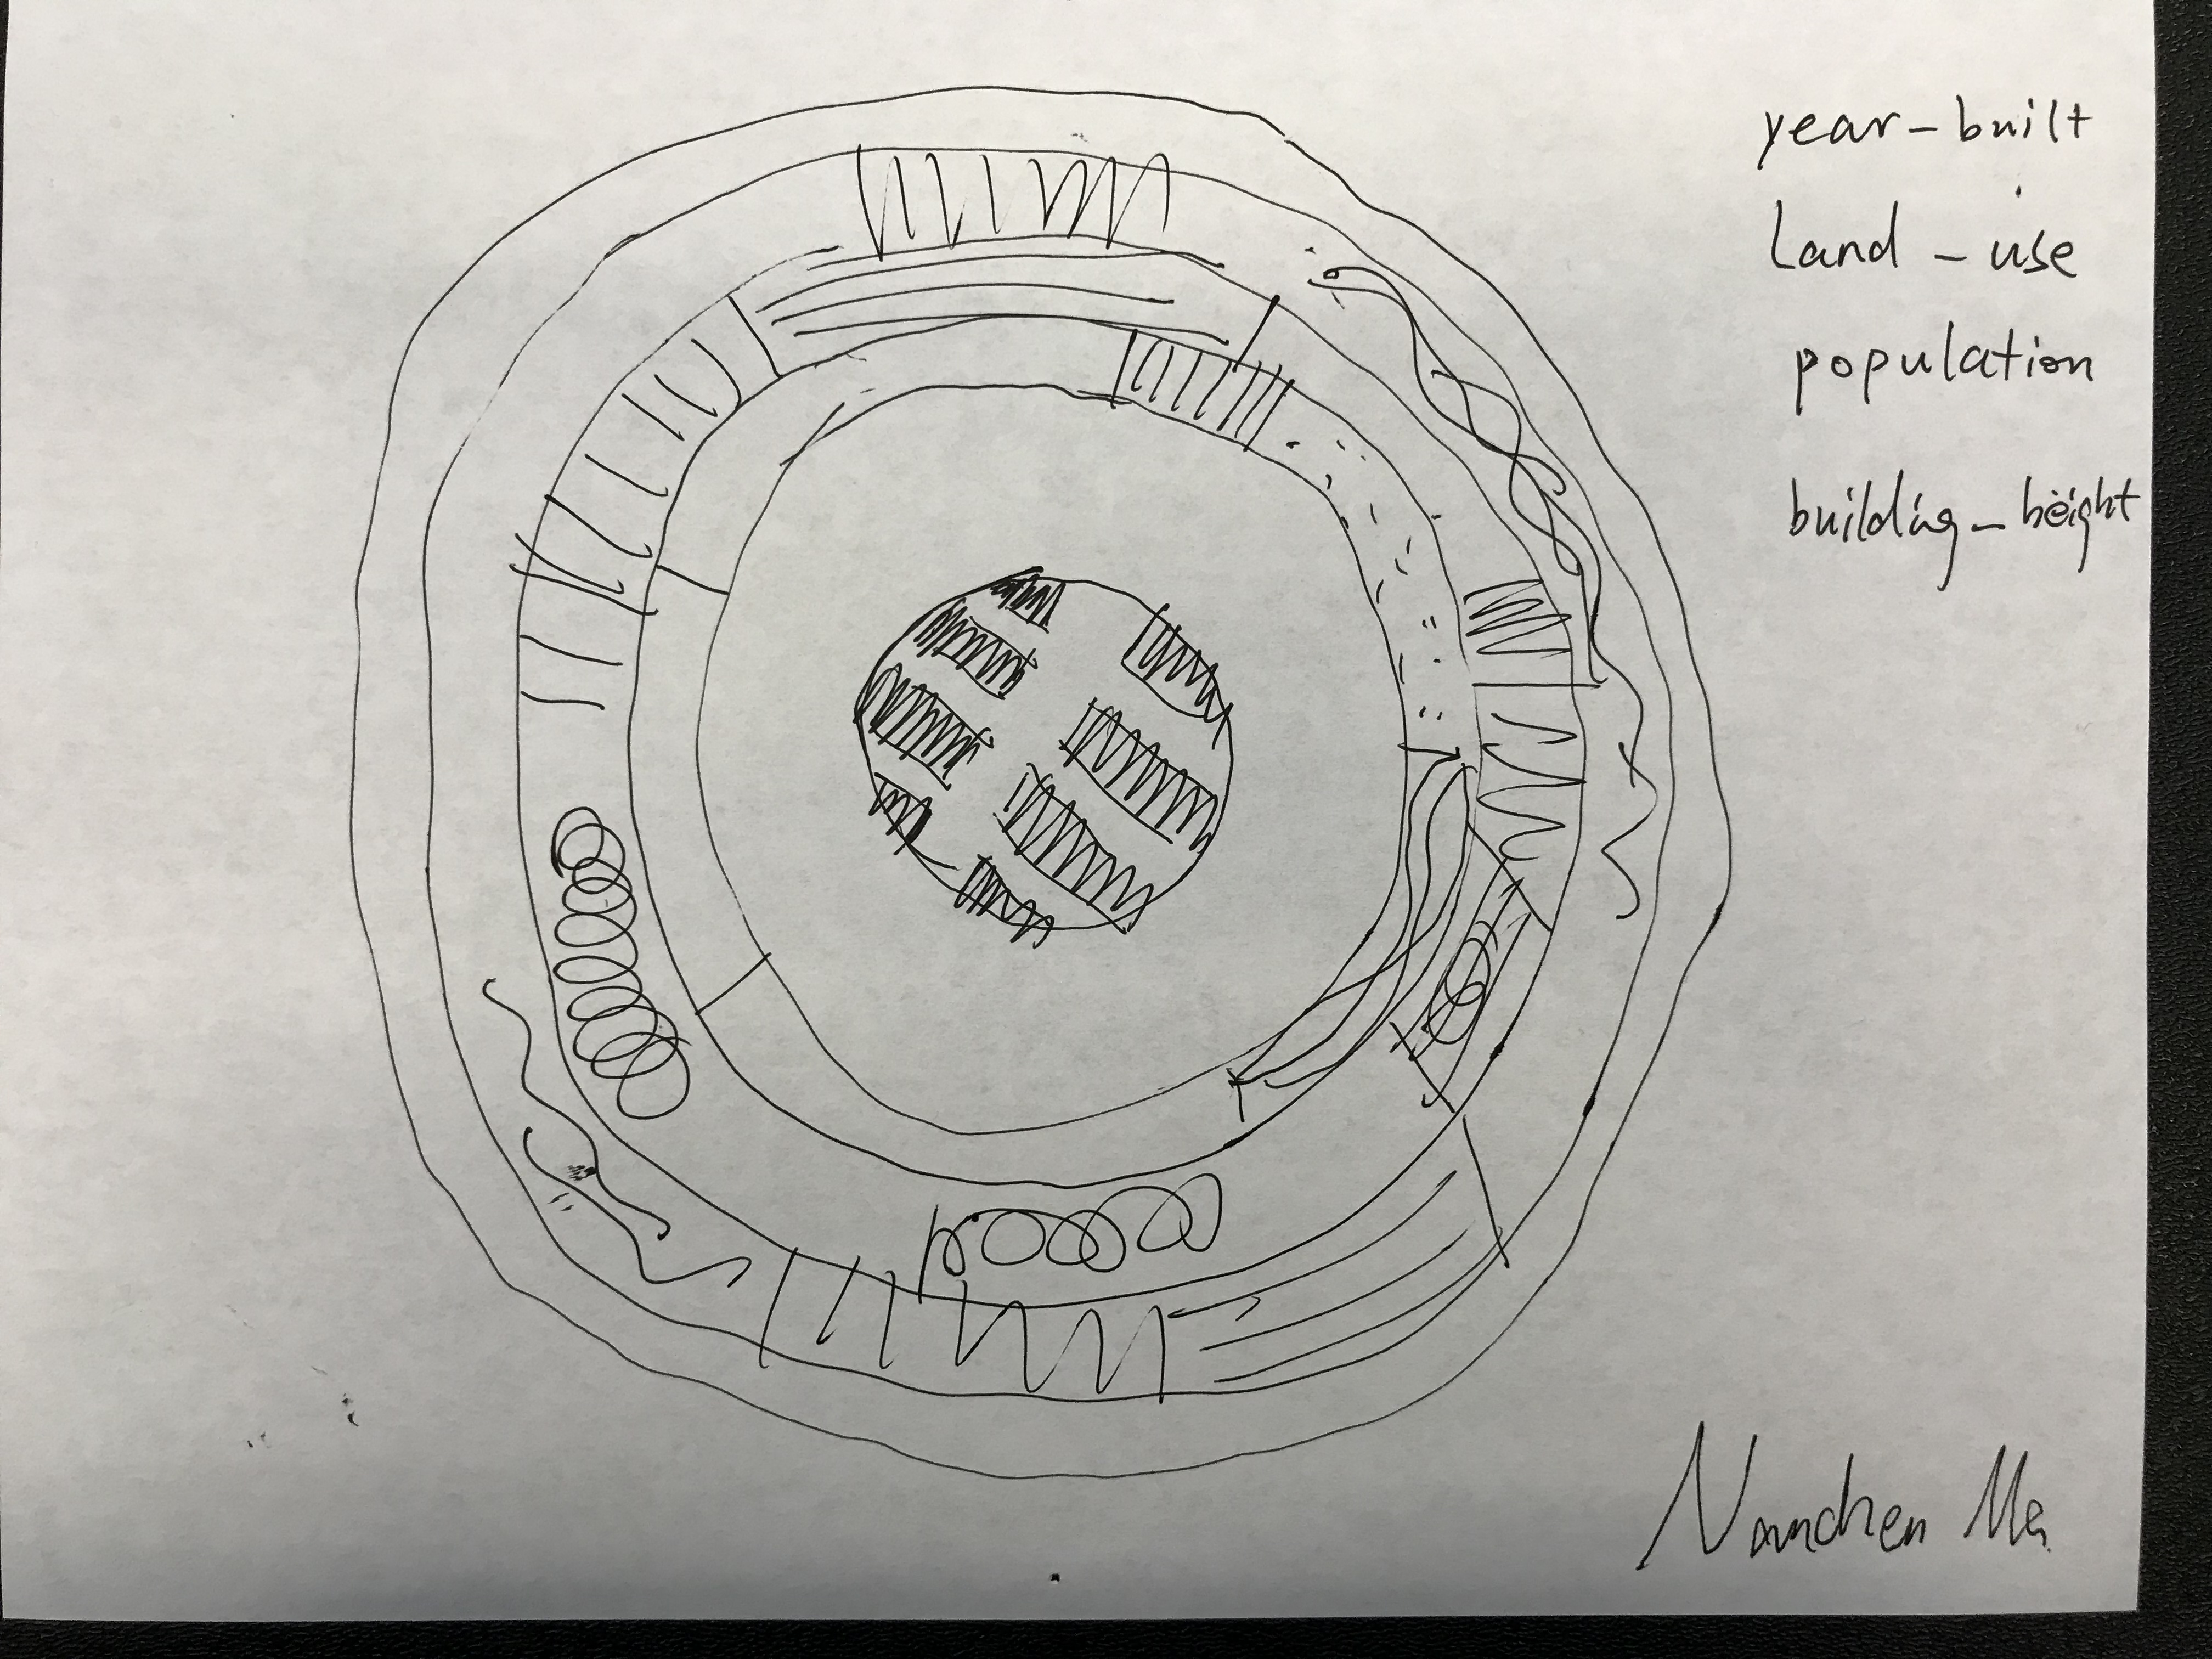 year-built
Land-use
population
building-height
Nanchen Ma